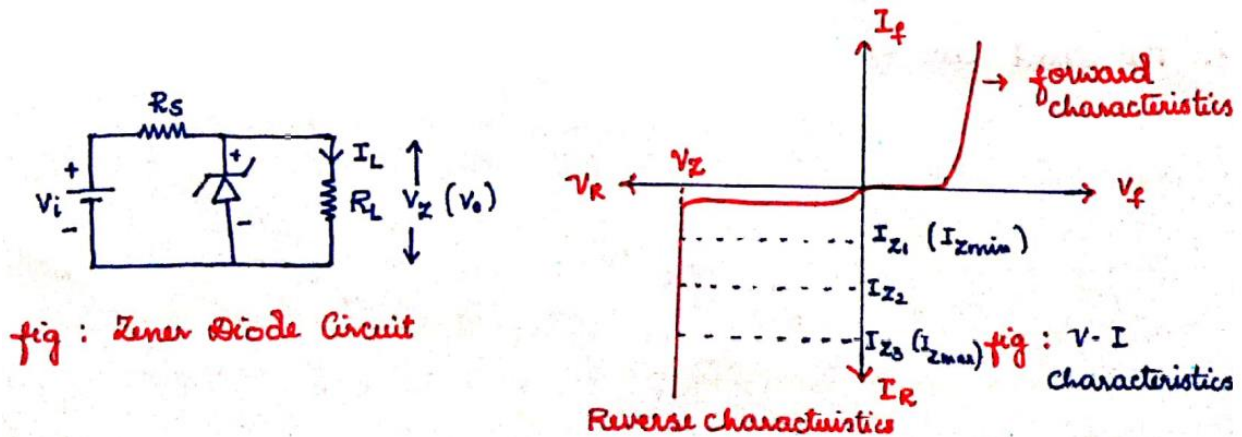 Rs
+
Vi
-
+
-
I_L
R_L
V_Z (V_o)
fig : Zener Diode Circuit
I_f
→ forward
characteristics
V_Z
V_R
V_f
I_Z1 (I_Zmin)
I_Z2
I_Z3 (I_Zmax)
fig : V-I
characteristics
I_R
Reverse characteristics